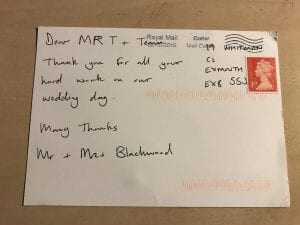 Dear MR T + Team
Royal Mail
Exeter
Mail Centre
Thank you for all your
hard work on our
wedding day.
EXMOUTH
EX8 5SJ
Many Thanks
Mr + Mrs Blackwood